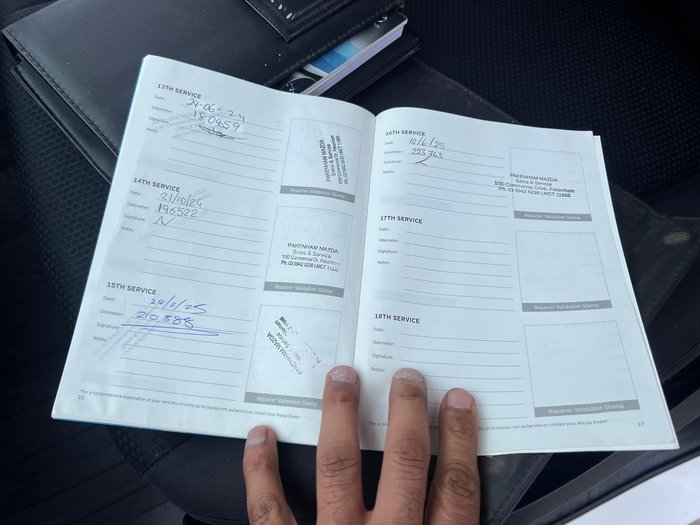 13TH SERVICE
Date: 24-06-24
Odometer: 180459
Signature:
Notes:
PAKENHAM MAZDA
Sales & Service
Repairer Validation Stamp
14TH SERVICE
Date: 21/10/24
Odometer: 196522
Signature:
Notes:
PAKENHAM MAZDA
Sales & Service
100 Commercial Dr, Pakenham
Ph: 03 5942 5238 LMCT 11565
Repairer Validation Stamp
15TH SERVICE
Date: 24/2/25
Odometer: 210588
Signature:
Notes:
PAKENHAM MAZDA
Repairer Validation Stamp
*For a comprehensive explanation of your vehicle's servicing go to mazda.com.au/service or contact your Mazda Dealer
16
16TH SERVICE
Date: 10/6/25
Odometer: 223,763
Signature:
Notes:
PAKENHAM MAZDA
Sales & Service
1/90 Commercial Drive, Pakenham
Ph: 03 5942 5238 LMCT 11565
Repairer Validation Stamp
17TH SERVICE
Date:
Odometer:
Signature:
Notes:
Repairer Validation Stamp
18TH SERVICE
Date:
Odometer:
Signature:
Notes:
Repairer Validation Stamp
go to mazda.com.au/service or contact your Mazda Dealer
17